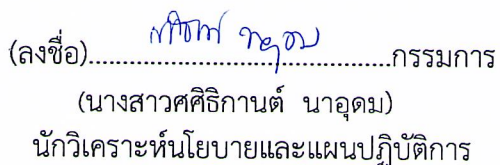 (ลงชื่อ)................................................กรรมการ
(นางสาวศศิธิกานต์ นาอุดม)
นักวิเคราะห์นโยบายและแผนปฏิบัติการ